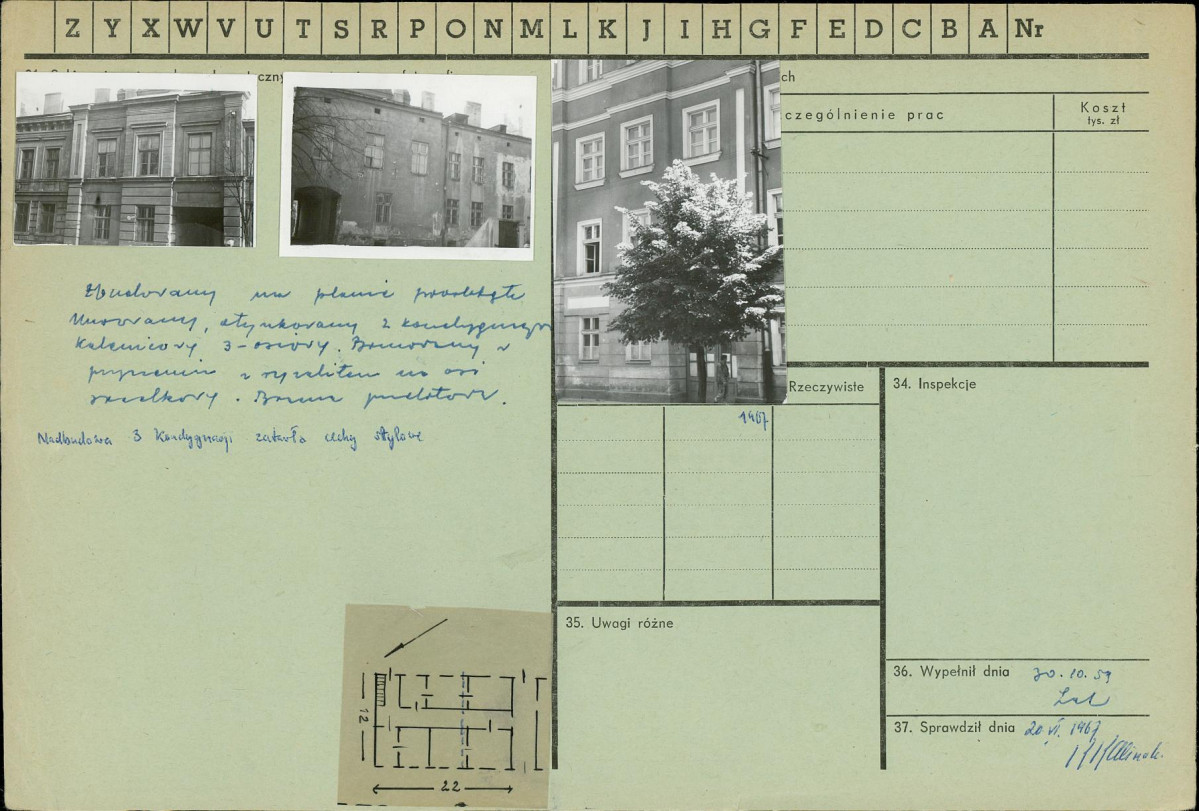 Z Y X W V U T S R P O N M L K J I H G F E D C B A Nr
ch
czególnienie prac
Koszt
tys. zł
Zbudowany na planie prostokąta
Murowany, otynkowany 2 kondygnacyjny
Kalenicowy 3-osiowy. Boniowany w
przyziemiu z ryzalitem na osi
. Brama
Nadbudowa 3 kondygnacji zatarła cechy stylowe
Rzeczywiste
1967
34. Inspekcje
35. Uwagi różne
36. Wypełnił dnia 30.10.59
37. Sprawdził dnia 20 VI. 1967
12
22